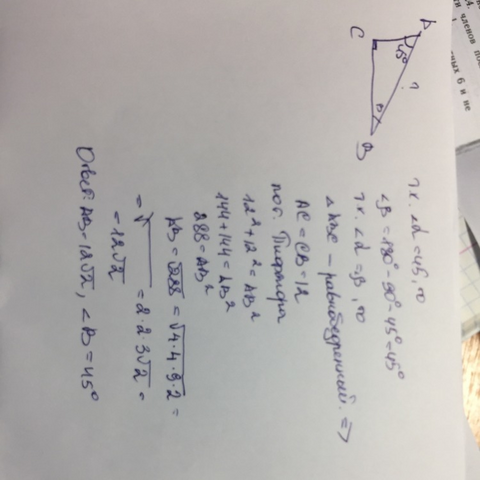 A
45°
C
?
B
т.к. ∠α=45, то
∠B = 180°-90°-45°=45°
т.к. ∠α=∠B, то
△ABC - равнобедренный. =>
AC = CB = 12
по т. Пифагора
12²+12²=AB²
144+144=AB²
288=AB²
AB = √288 = √4·4·9·2 =
= √ = 2·2·3√2 =
= 12√2
Ответ: AB=12√2, ∠B=45°
членов
ных 6 и не